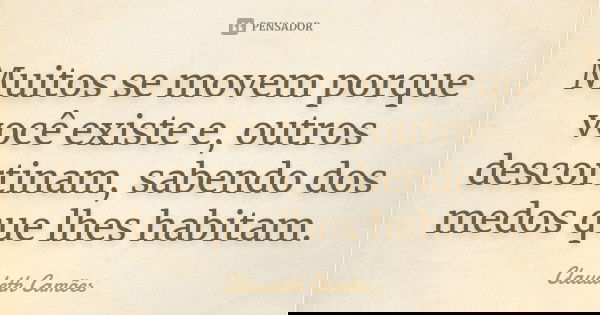 PENSADOR
Muitos se movem porque
você existe e, outros
descortinam, sabendo dos
medos que lhes habitam.
Claudeth Camões